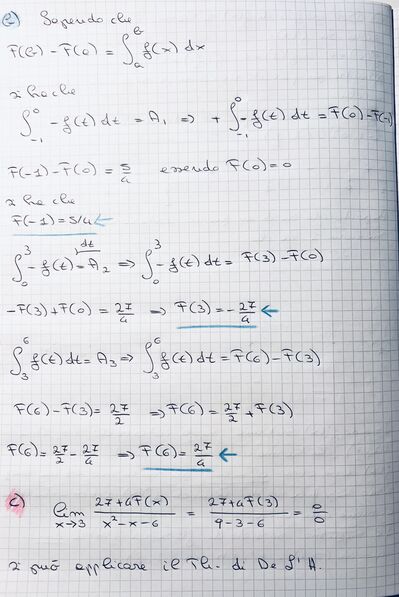 b) Sapendo che
F(b) - F(0) = ∫_a^b f(x) dx
si ha che
∫_{-1}^0 -f(t) dt = A₁ ⇒ + ∫_{-1}^0 -f(t) dt = F(0) - F(-1)
F(-1) - F(0) = 5/4 essendo F(0) = 0
si ha che
F(-1) = 5/4 ←
∫_0^3 -f(t) dt = A₂ ⇒ ∫_0^3 -f(t) dt = F(3) - F(0)
-F(3) + F(0) = 27/4 ⇒ F(3) = -27/4 ←
∫_3^6 f(t) dt = A₃ ⇒ ∫_3^6 f(t) dt = F(6) - F(3)
F(6) - F(3) = 27/2 ⇒ F(6) = 27/2 + F(3)
F(6) = 27/2 - 27/4 ⇒ F(6) = 27/4 ←
c) lim_{x→3} (27 + 4F(x))/(x² - x - 6) = (27 + 4F(3))/(9 - 3 - 6) = 0/0
si può applicare il Th. di De L'H.